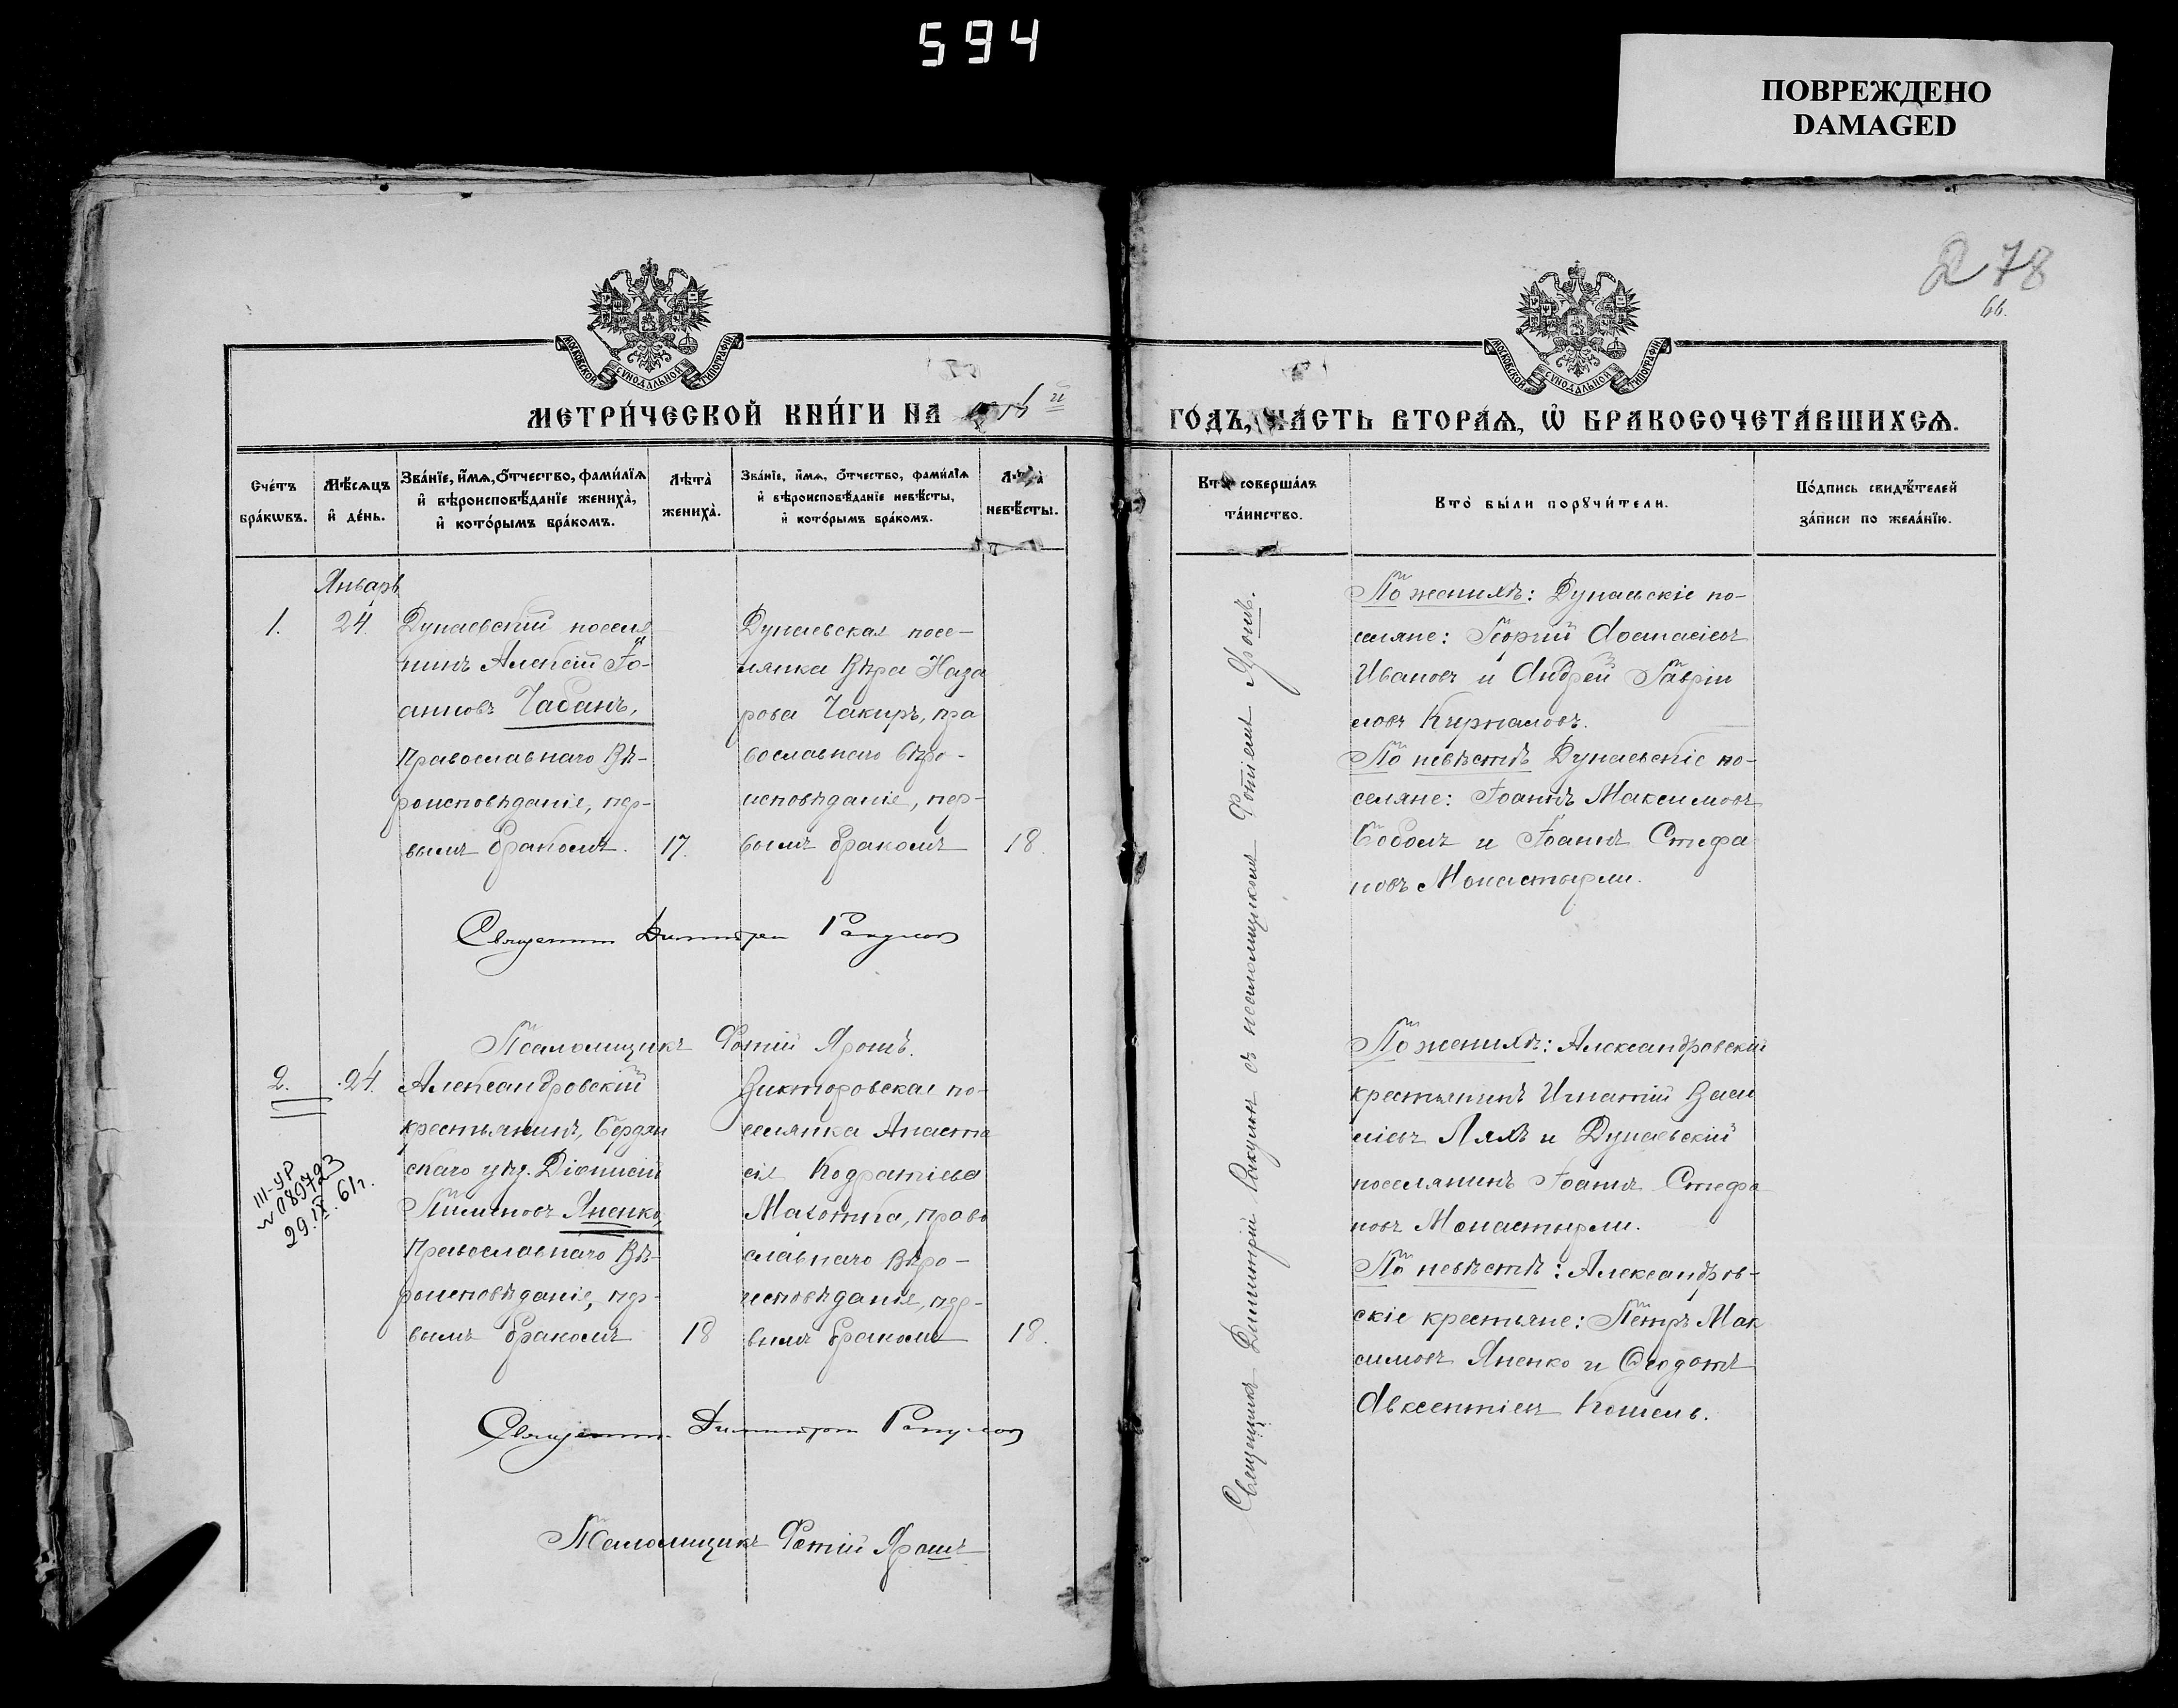 594
ПОВРЕЖДЕНО
DAMAGED
278
66.
МОСКОВСКОЙ СѴНОДАЛЬНОЙ ТИПОГРАФІИ
МОСКОВСКОЙ СѴНОДАЛЬНОЙ ТИПОГРАФІИ
МЕТРИ́ЧЕСКОЙ КНИ́ГИ НА
ГО́ДЪ, ЧА́СТЬ ВТОРА́Ѧ, Ѽ БРАКОСОЧЕТА́ВШИХСѦ.
Сче́тъ бра́кѡвъ.
Мѣ́сѧцъ и҆ де́нь.
Зва́нїе, и҆́мѧ, ѻ҆́тчество, фами́лїѧ и҆ вѣроисповѣ́данїе жениха̀, и҆ кото́рымъ бра́комъ.
Лѣта̀ жениха̀.
Зва́нїе, и҆́мѧ, ѻ҆́тчество, фами́лїѧ и҆ вѣроисповѣ́данїе невѣ́сты, и҆ кото́рымъ бра́комъ.
Лѣта̀ невѣ́сты.
Кто̀ соверша́лъ та́инство.
Кто̀ бы́ли порꙋчи́тели.
По́дпись свидѣ́телей за́писи по жела́нїю.
Январь
1.
24.
Дунаевскій поселя
нинъ Алексій Іо-
анновъ Чабанъ,
Православнаго Вѣ-
роисповѣданія, пер-
вымъ бракомъ.
17.
Дунаевская посе-
лянка Вѣра Наза
рова Чакиръ, пра
вославнаго вѣро-
исповѣданія, пер-
вымъ бракомъ
18.
По женихѣ: Дунаевскіе по-
селяне: Георгій Афанасіевъ
Ивановъ и Андрей Гаврiи
ловъ
По невѣстѣ Дунаевскіе по-
селяне: Іоаннъ Максимовъ
и Іоаннъ Стефа
новъ Монастырли.
Димитрій
Псаломщикъ Фотій Ярошъ.
2.
24.
Александровскій
крестьянинъ, Бердян
скаго уѣз. Діонисій
Пименовъ Яненко,
Православнаго Вѣ-
роисповѣданія, пер-
вымъ бракомъ
18
Викторовская по-
селянка Анаста
сія Кодратіева
Махотка, право
славнаго Вѣро-
исповѣданія, пер-
вымъ бракомъ
18.
III-УР
№089793
29.IX.61г.
По женихѣ: Александровскій
крестьянинъ Игнатій Васи
ліевъ Ляхъ и Дунаевскій
поселянинъ Іоаннъ Стефа
новъ Монастырли.
По невѣстѣ: Александров-
скіе крестьяне: Петръ Мак
симовъ Яненко и Ѳеодотъ
Авксентіевъ Кошель.
Димитрій
Псаломщикъ Фотій Ярошъ
Священникъ Димитрій съ псаломщикомъ Фотіемъ Ярошъ.